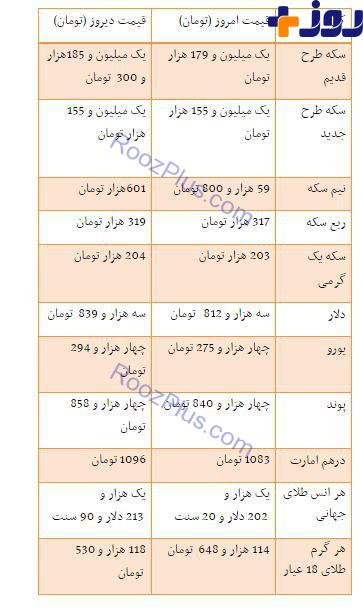 روز+
قیمت امروز (تومان)
قیمت دیروز (تومان)
سکه طرح
قدیم
یک میلیون و 179 هزار
تومان
یک میلیون و 185هزار
و 300 تومان
سکه طرح
جدید
یک میلیون و 155 هزار
تومان
یک میلیون و 155
هزار تومان
نیم سکه
59 هزار و 800 تومان
601هزار تومان
ربع سکه
317 هزار تومان
319 هزار تومان
سکه یک
گرمی
203 هزار تومان
204 هزار تومان
دلار
سه هزار و 812 تومان
سه هزار و 839 تومان
یورو
چهار هزار و 275 تومان
چهار هزار و 294
تومان
پوند
چهار هزار و 840 تومان
چهار هزار و 858
تومان
درهم امارت
1083 تومان
1096 تومان
هر انس طلای
جهانی
یک هزار و
202 دلار و 20 سنت
یک هزار و
213 دلار و 90 سنت
هر گرم
طلای 18 عیار
114 هزار و 648 تومان
118 هزار و 530
تومان
RoozPlus.com
RoozPlus.com